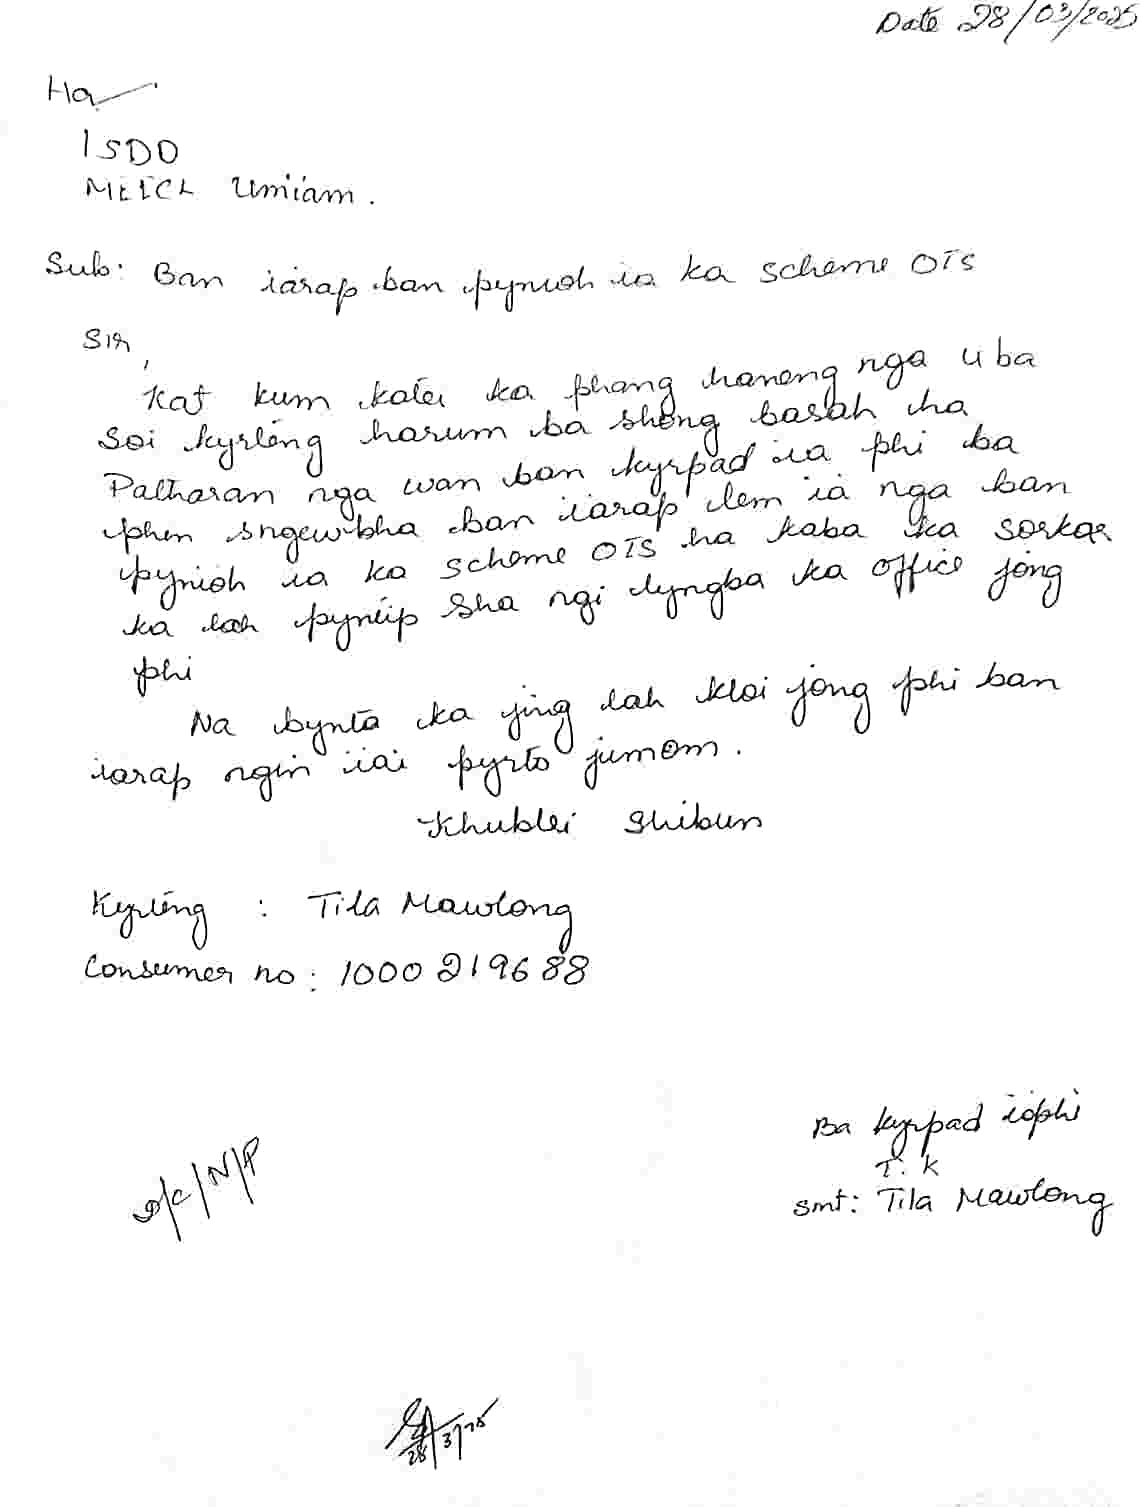 Date 28/03/2025
Ha
ISDO
MEECL Umiam.
Sub: Ban iarap ban pynioh ia ka scheme OTS
Sir,
Kat kum katei ka phang haneng nga u ba
soi kyrteng harum ba shong basah ha
Patharan nga wan ban kyrpad ia phi ba
phin sngewbha ban iarap lem ia nga ban
pynioh ia ka scheme OTS ha kaba ka sorkar
ka lah pyntip sha ngi lyngba ka office jong
phi
Na bynta ka jing lah kloi jong phi ban
iarap ngin iai pyrto jumom.
Khublei shibun
Kyrteng : Tila Mawlong
Consumer no: 1000219688
Ba kyrpad iaphi
T. K
smt: Tila Mawlong
O/C/N/P
28/3/25